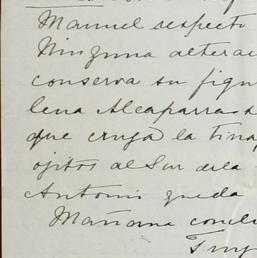 Manuel respecto
Ninguna alterac
conserva su figu
lena Alcaparrosa
que cruza la tina
ojitos al Sur de la
Antonio queda
Mañana conclu